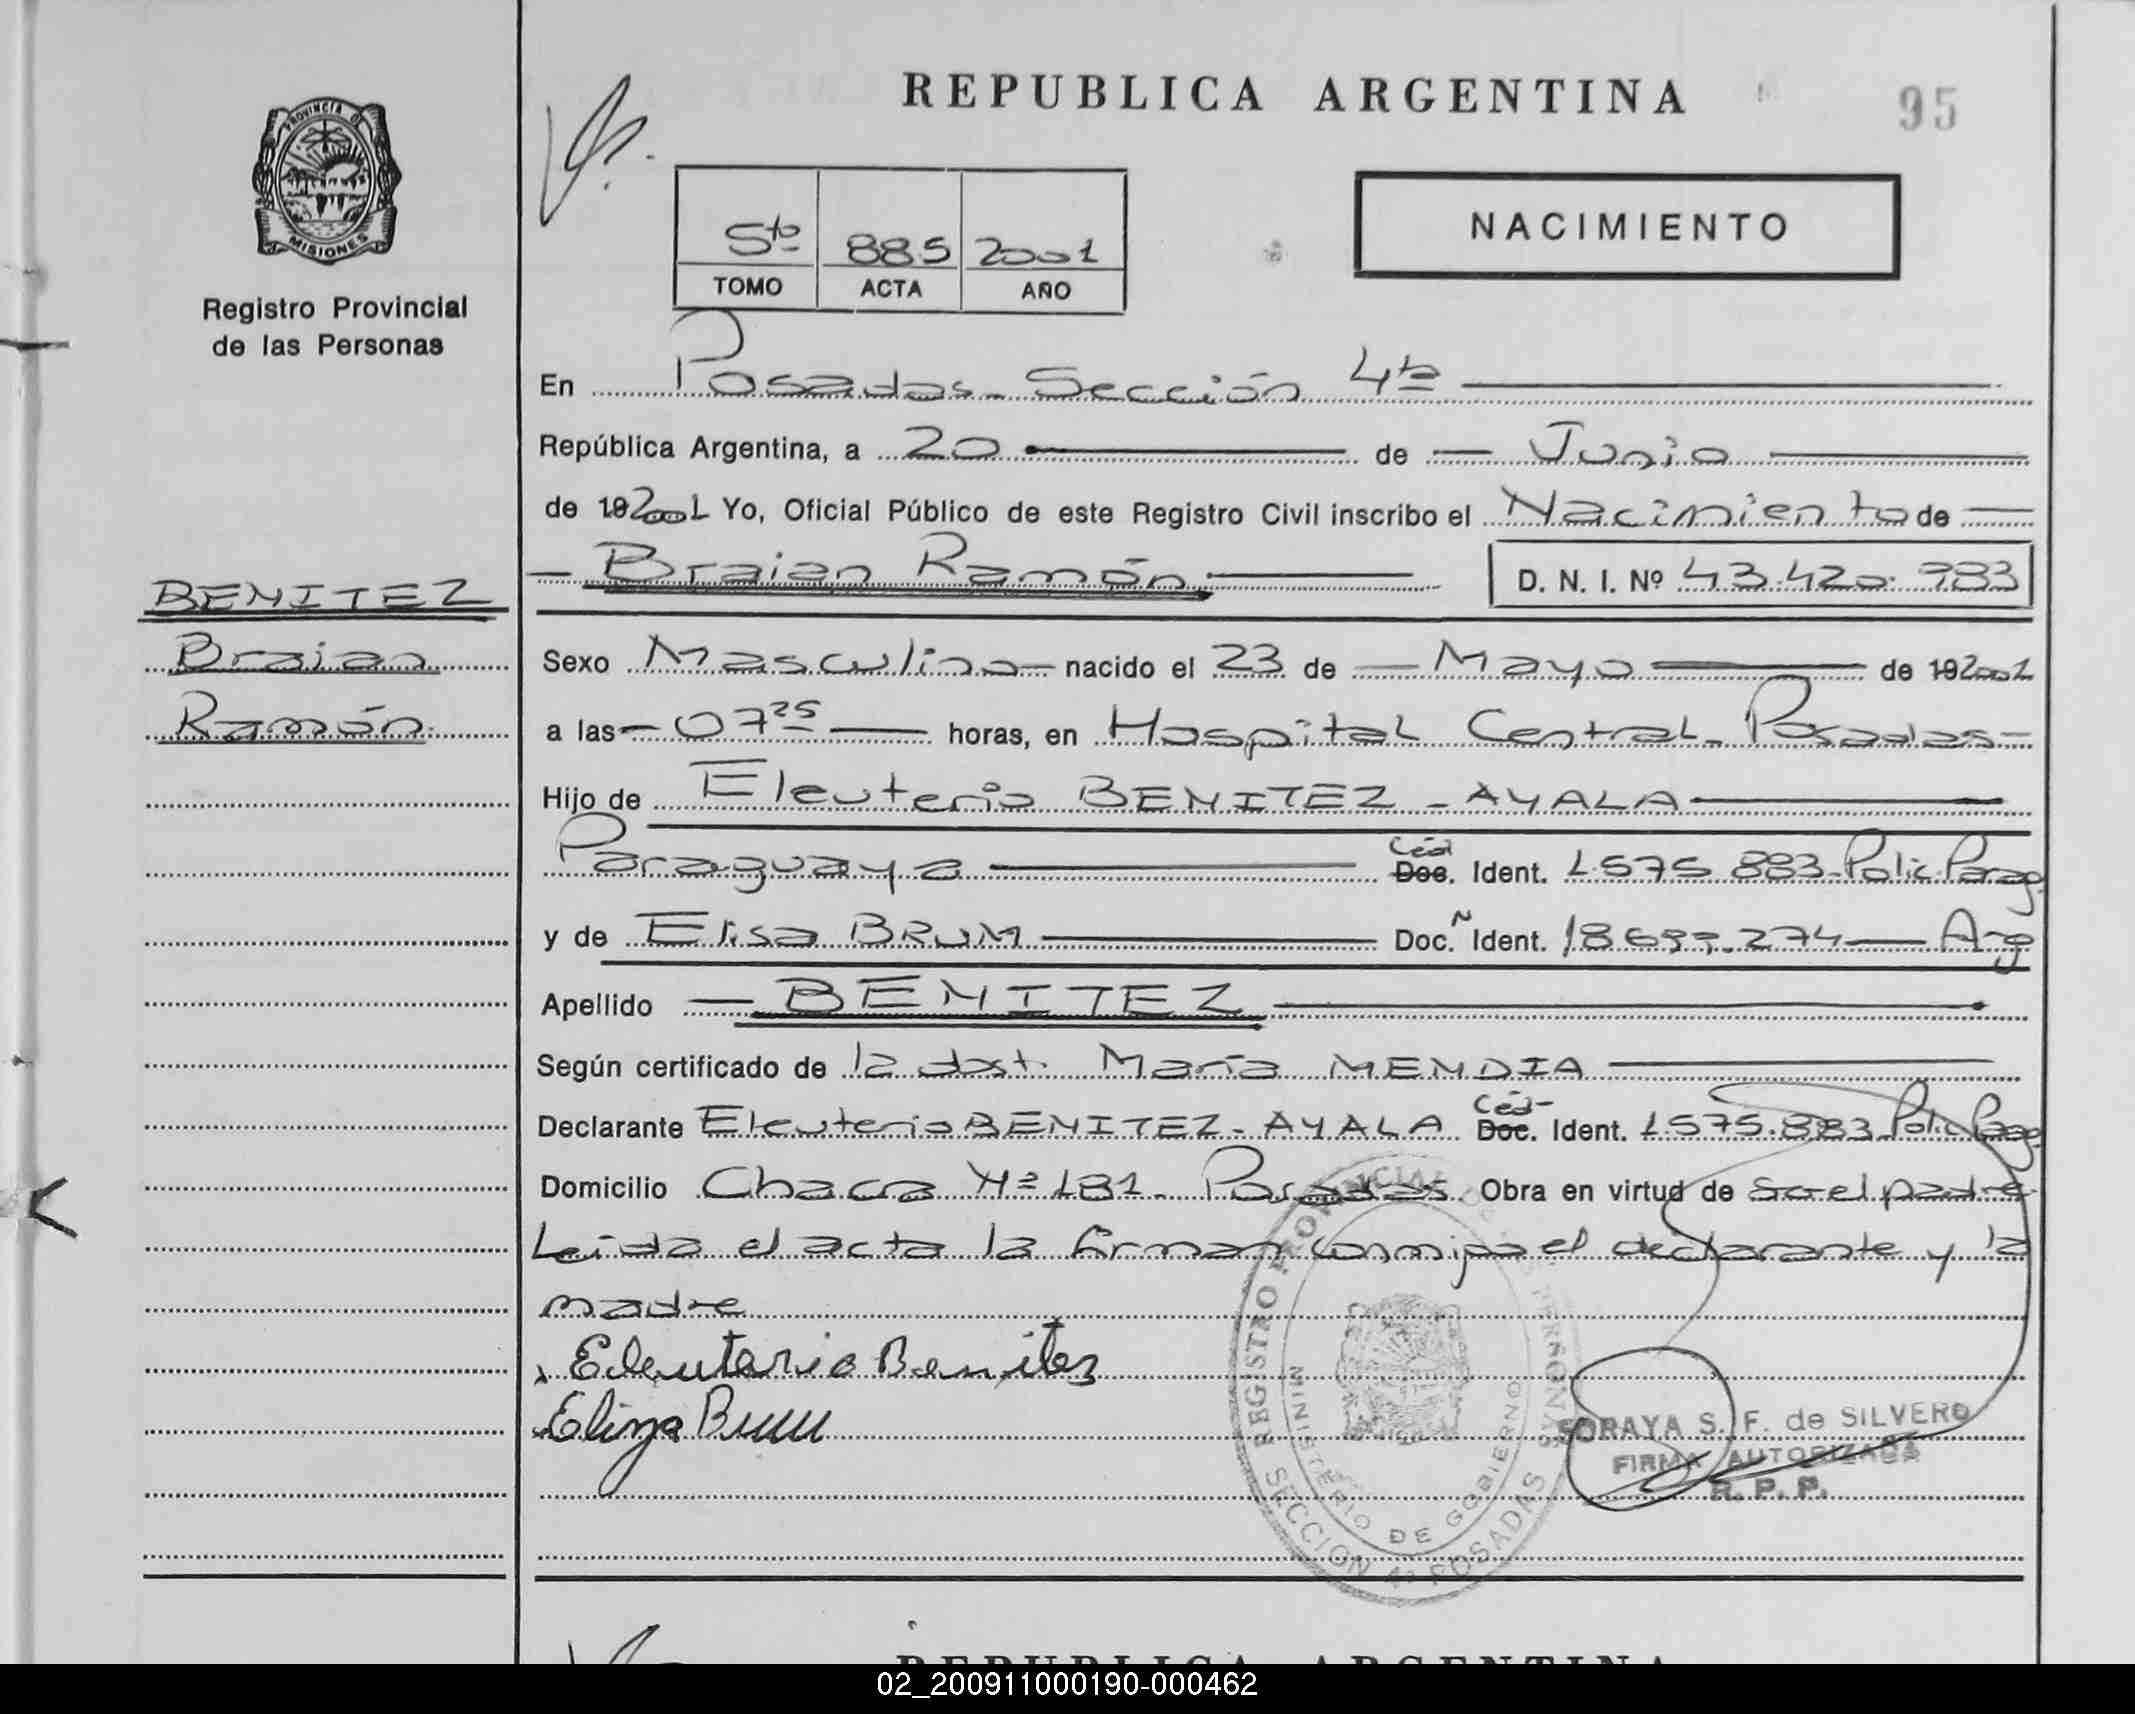 REPUBLICA ARGENTINA
95
PROVINCIA DE
MISIONES
Registro Provincial
de las Personas
5to 885 2001
TOMO ACTA AÑO
NACIMIENTO
En Posadas - Sección 4ta
República Argentina, a 20 de Junio
de 192001 Yo, Oficial Público de este Registro Civil inscribo el Nacimiento de
Braian Ramón D. N. I. Nº 43.420.783
BENITEZ
Braian
Ramón
Sexo Masculino nacido el 23 de Mayo de 192001
a las 07 25 horas, en Hospital Central - Posadas
Hijo de Eleuterio BENITEZ - AYALA
Paraguaya Céd Doc. Ident. 1.575.883 - Polic. Parag
y de Elisa BRUM Doc. Ñ Ident. 274 Arg
Apellido BENITEZ
Según certificado de la obst. María MENDIA
Declarante Eleuterio BENITEZ - AYALA Céd- Doc. Ident. 1.575.883 Polic Parag
Domicilio Chacra Nº 181 - Posadas Obra en virtud de ser el padre
Leida el acta la firman conmigo el declarante y la
madre
Eleuterio Benitez
Eliza Brum
REGISTRO PROVINCIAL DE LAS PERSONAS
MINISTERIO DE GOBIERNO
SECCION 4ª POSADAS
SORAYA S. F. de SILVERO
FIRMA AUTORIZADA
R. P. P.
REPUBLICA ARGENTINA
02_200911000190-000462